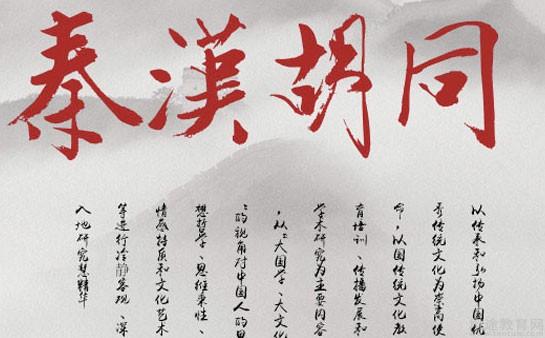 秦漢胡同
以传承和弘扬中国优
秀传统文化为崇高使
命,以国传统文化教
育培训、传播发展和
学术研究为主要内容
,从“大国学、大文化
”的视角对中国人的思
想哲学、思维秉性、
情感特质和文化艺术
等进行冷静客观、深
入地研究慧精华
教育网